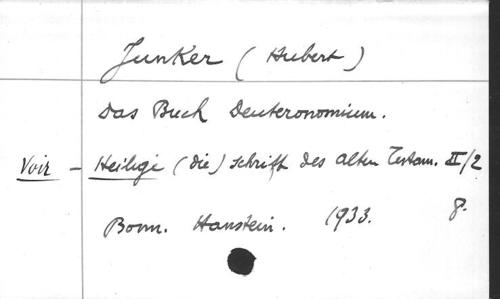 Junker (Hubert)
Das Buch Deuteronomium.
Voir - Heilige (die) schrift des alten Testam. II/2
Bonn. Hanstein. 1933. 8.